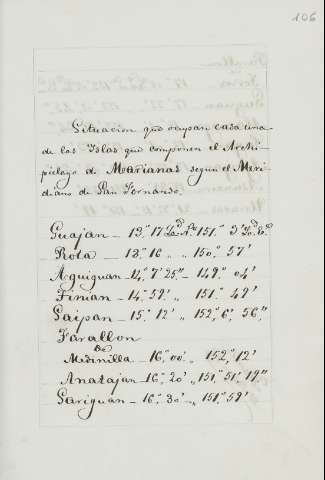 106
Situacion que ocupan casa una
de las Yslas que componen el Archi-
pielago de Marianas segun el Meri-
diano de San Fernando.
Guajan - 13.° 17' Ld. N. 151.° 3' Ld. E.
Rota - 18.° 16 „ „ 150.° 57'
Aguiguan - 14.° 7' 25" - 149.° 04'
Tinian - 14.° 59' „ 151.° 49'
Saipan - 15.° 12' „ 152.° 6' 56"
Farallon
de
Medinilla - 16.° 00' „ 152.° 12'
Anatajan - 16.° 20' „ 151.° 51' 19"
Sariguan - 16.° 30' - „ 151.° 59'